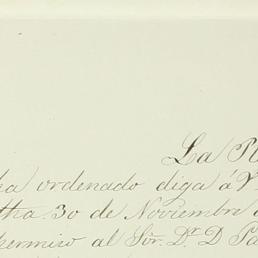 La
ha ordenado diga á V
fha. 30 de Noviembre
permiso al Sōr. Dr. D